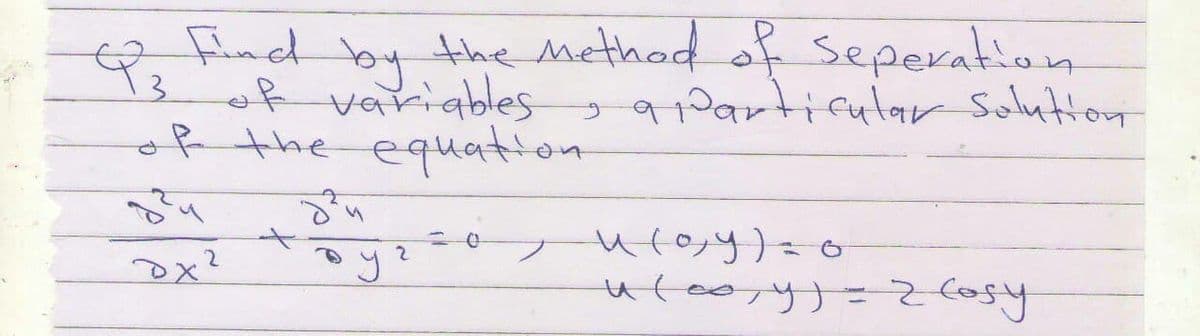 Q3 Find by the Method of Seperation
of variables, a particular Solution
of the equation
∂²u/∂x² + ∂²u/∂y² = 0, u(0,y) = 0
u(∞,y) = 2 Cosy